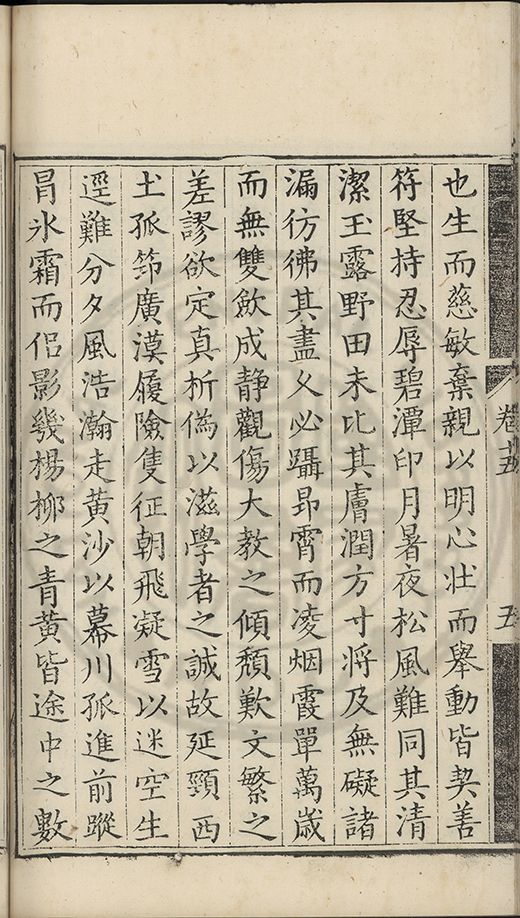 卷十五
五
也生而慈敏棄親以明心壯而舉動皆契善
符堅持忍辱碧潭印月暑夜松風難同其清
潔玉露野田未比其膚潤方寸將及無礙諸
漏彷彿其盡乂必躡昻霄而凌烟霞單萬歲
而無雙歛成静觀傷大教之傾頹歎文繁之
差謬欲定真析偽以滋學者之誠故延頸西
土孤筇廣漠履險隻征朝飛凝雪以迷空生
逕難分夕風浩瀚走黃沙以幕川孤進前蹤
冐氷霜而侣影幾楊柳之青黃皆途中之數